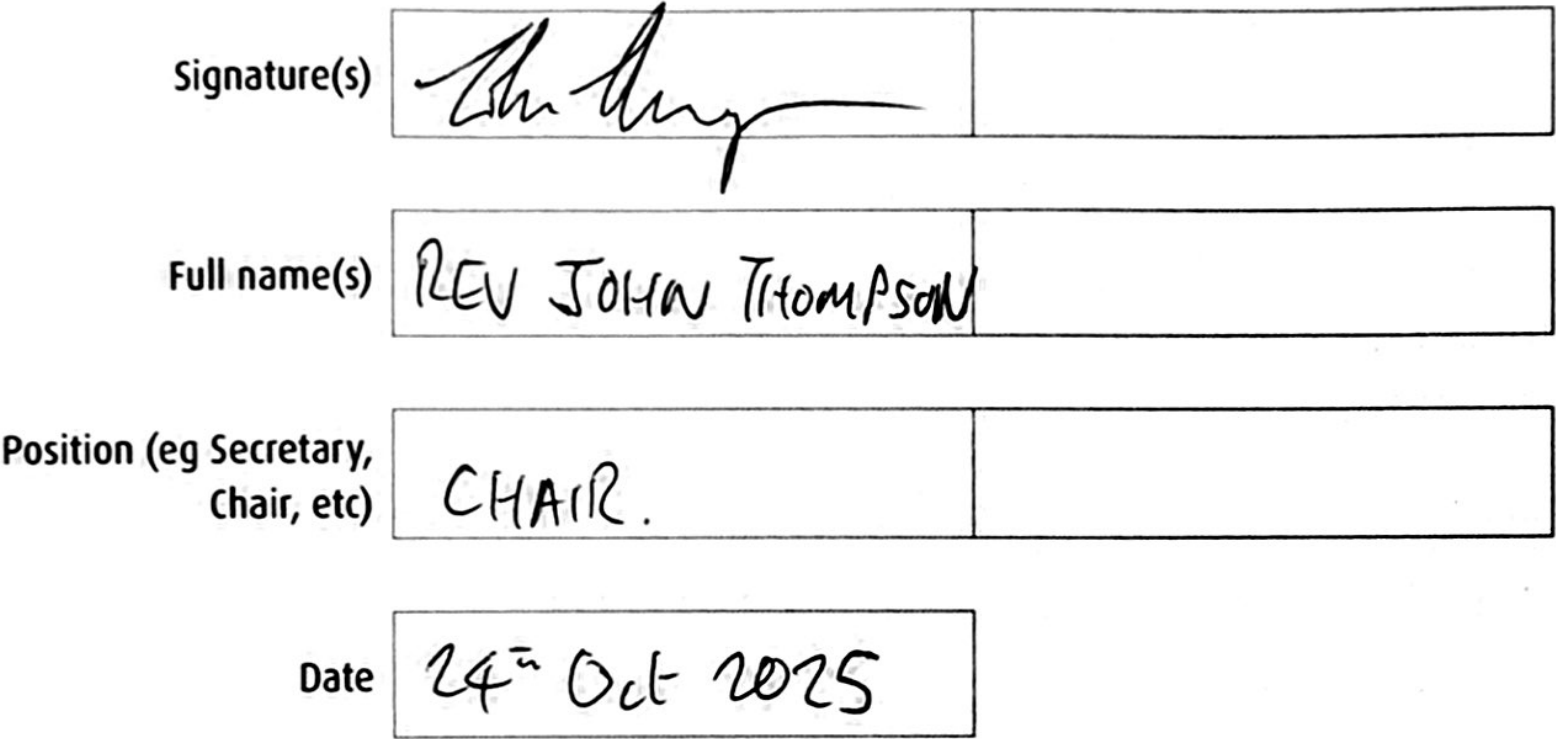 Signature(s)
Full name(s) REV JOHN THOMPSON
Position (eg Secretary,
Chair, etc) CHAIR.
Date 24th Oct 2025